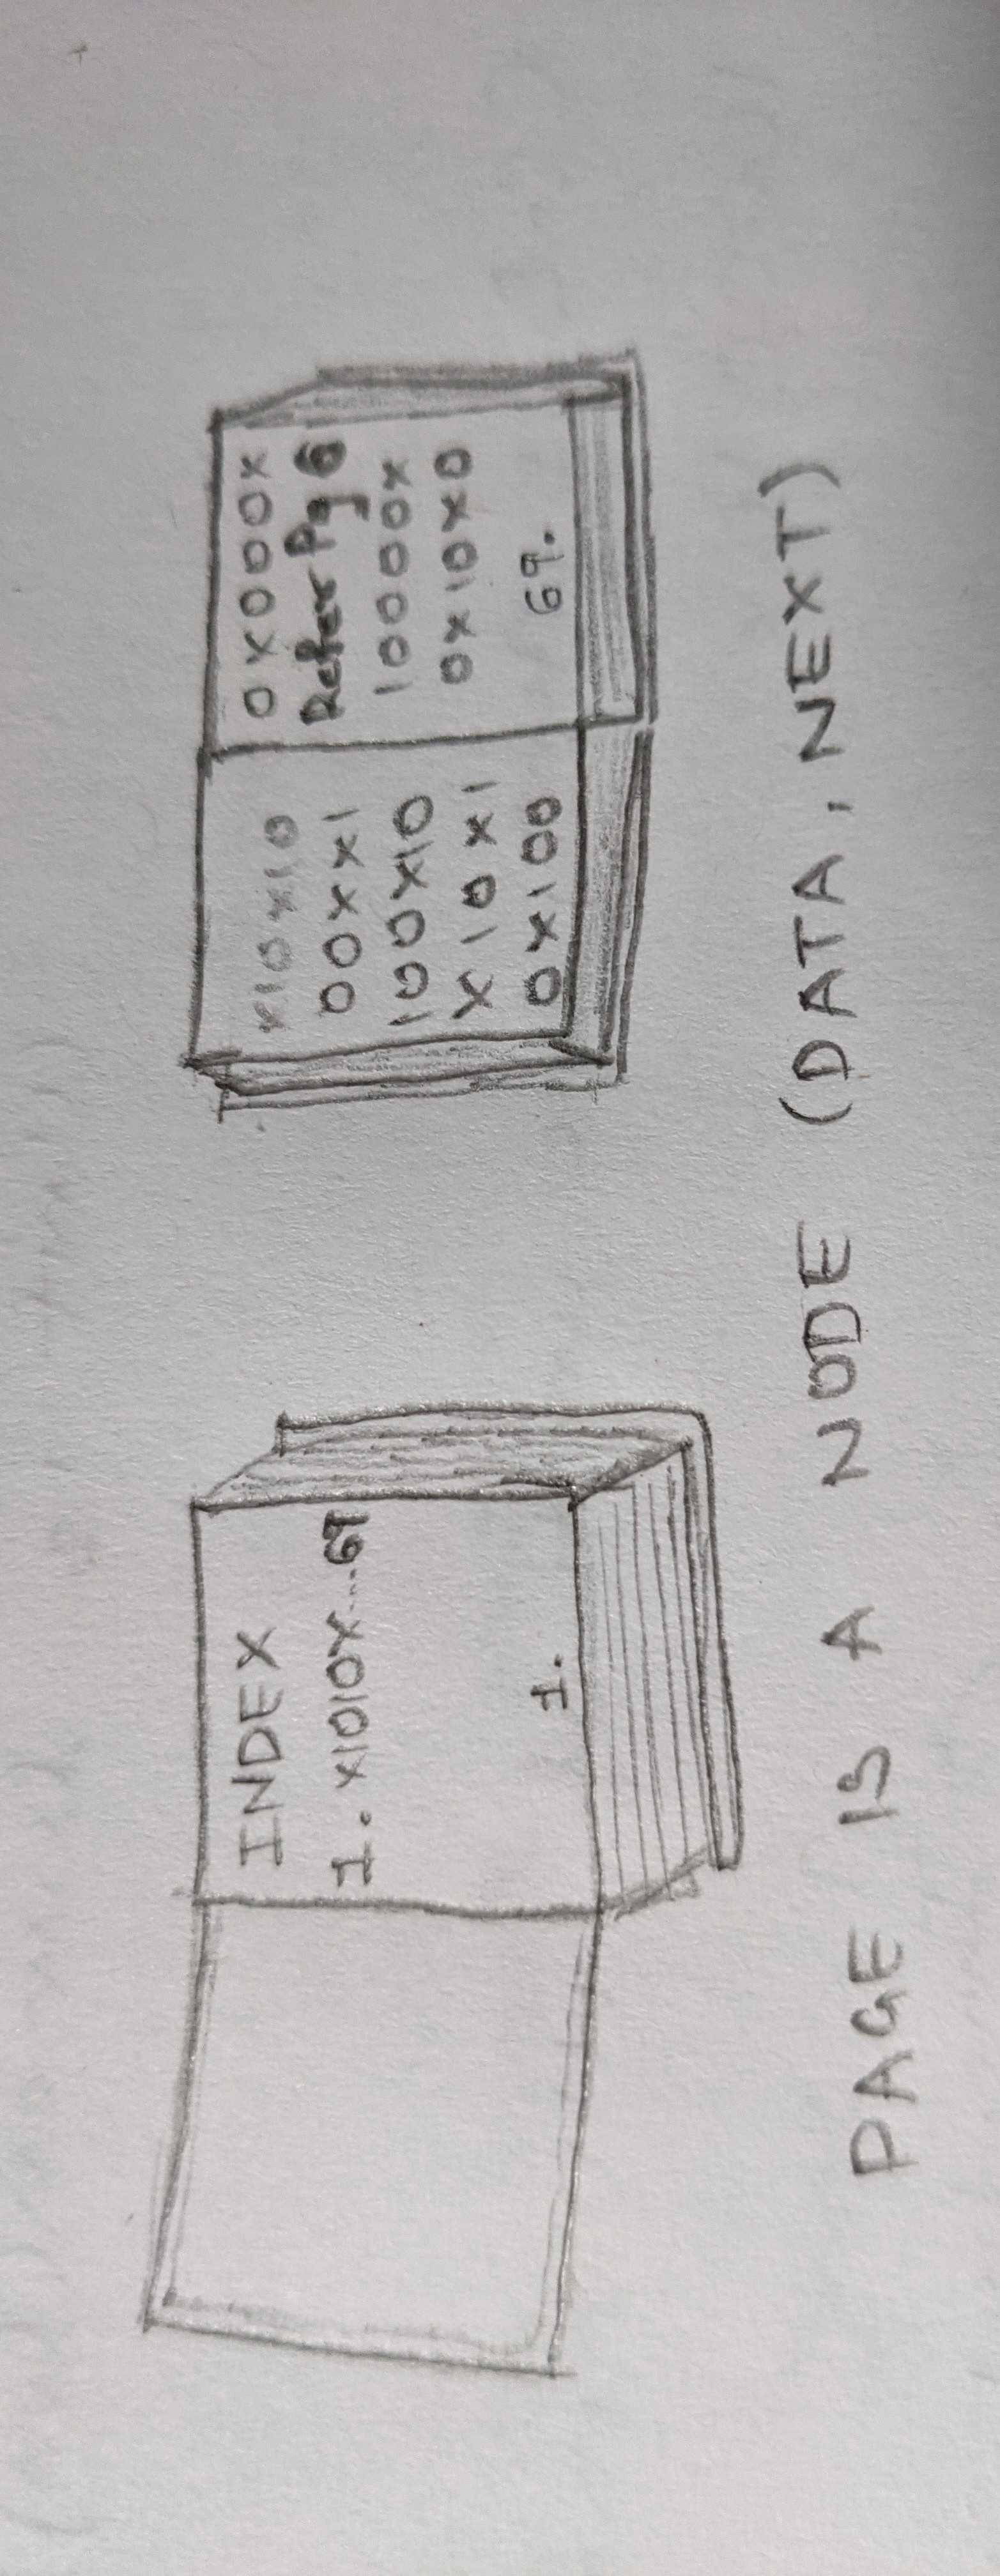 INDEX
1. x1010x...69
1.
x10x10
00xx1
100x10
x10x1
0x100
0x000x
Refer Pg 6
10000x
0x10x0
69.
PAGE IS A NODE (DATA, NEXT)